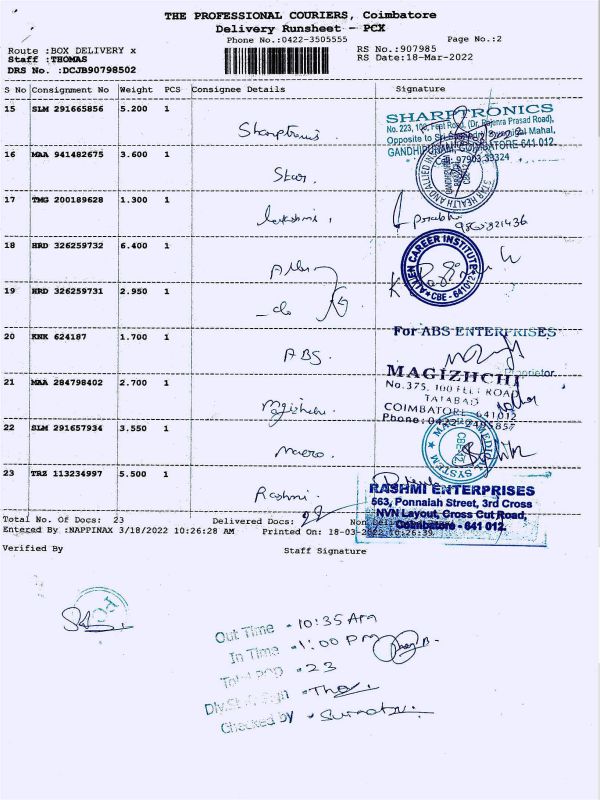 THE PROFESSIONAL COURIERS, Coimbatore
Delivery Runsheet - PCX
Phone No.:0422-3505555 Page No.:2
Route :BOX DELIVERY x RS No.:907985
Staff :THOMAS RS Date:18-Mar-2022
DRS No. :DCJB90798502
S No Consignment No Weight PCS Consignee Details Signature
15 SLM 291665856 5.200 1 Sharptronics
SHARPTRONICS
No. 223, 100, Feet Road, (Dr. Rajenra Prasad Road),
Opposite to Sri Mahal,
GANDHIPURAM, COIMBATORE 641 012.
Cell: 97903 39324
16 MAA 941482675 3.600 1 Star.
STAR HEALTH AND ALLIED
17 TMG 200189628 1.300 1 lakshmi. prabhu
18 HRD 326259732 6.400 1 Allen
ALLEN CAREER INSTITUTE
CBE - 641012
19 HRD 326259731 2.950 1 -do
20 KNK 624187 1.700 1 ABS.
For ABS ENTERPRISES
Proprietor.
21 MAA 284798402 2.700 1 Magizhchi
MAGIZHCHI
No.375, 100 FEET ROAD
TATABAD
COIMBATORE 641012
Phone:0422-2495857
22 SLM 291657934 3.550 1 macro.
MEDICAL SYSTEM
23 TRZ 113234997 5.500 1 Rashmi.
RASHMI ENTERPRISES
563, Ponnaiah Street, 3rd Cross
NVN Layout, Cross Cut Road,
Coimbatore - 641 012.
Total No. Of Docs: 23 Delivered Docs: Non Deli
Entered By :NAPPINAX 3/18/2022 10:26:28 AM Printed On: 18-03-2022 10:26:39
Verified By Staff Signature
Out Time - 10:35 Am
In Time - 1:00 Pm
Total - 23
Sign - Tho
Checked by -